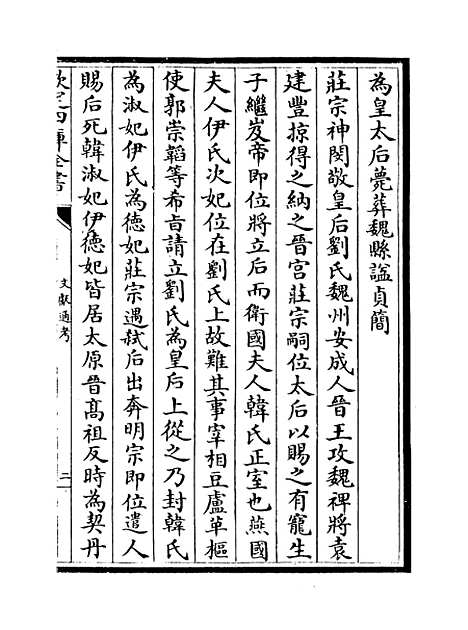 為皇太后薨葬魏縣諡貞簡
莊宗神閔敬皇后劉氏魏州安成人晉王攻魏裨將袁
建豐掠得之納之晉宫莊宗嗣位太后以賜之有寵生
子繼岌帝即位將立后而衛國夫人韓氏正室也燕國
夫人伊氏次妃位在劉氏上故難其事宰相豆盧革樞
使郭崇韜等希旨請立劉氏為皇后上從之乃封韓氏
為淑妃伊氏為德妃莊宗遇弑后出奔明宗即位遣人
賜后死韓淑妃伊德妃皆居太原晉髙祖反時為契丹
欽定四庫全書
文獻通考
二